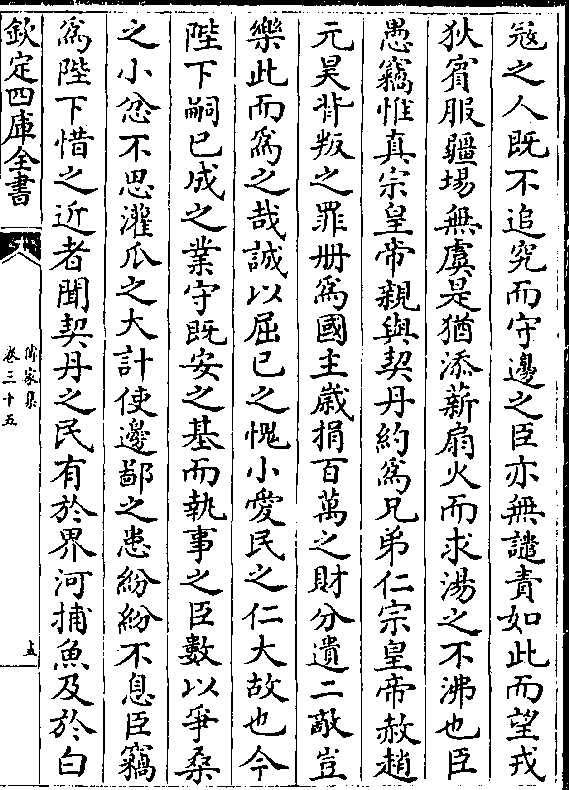 宼之人既不追究而守邊之臣亦無譴責如此而望戎
狄賓服疆場無虞是猶添薪扇火而求湯之不沸也臣
愚竊惟真宗皇帝親與契丹約為兄弟仁宗皇帝赦趙
元昊背叛之罪册為國主嵗捐百萬之財分遺二敵豈
樂此而為之哉誠以屈已之愧小愛民之仁大故也今
陛下嗣已成之業守既安之基而執事之臣數以爭桑
之小忿不思灌瓜之大計使邊鄙之患紛紛不息臣竊
為陛下惜之近者聞契丹之民有於界河捕魚及於白
欽定四庫全書
傳家集
卷三十五